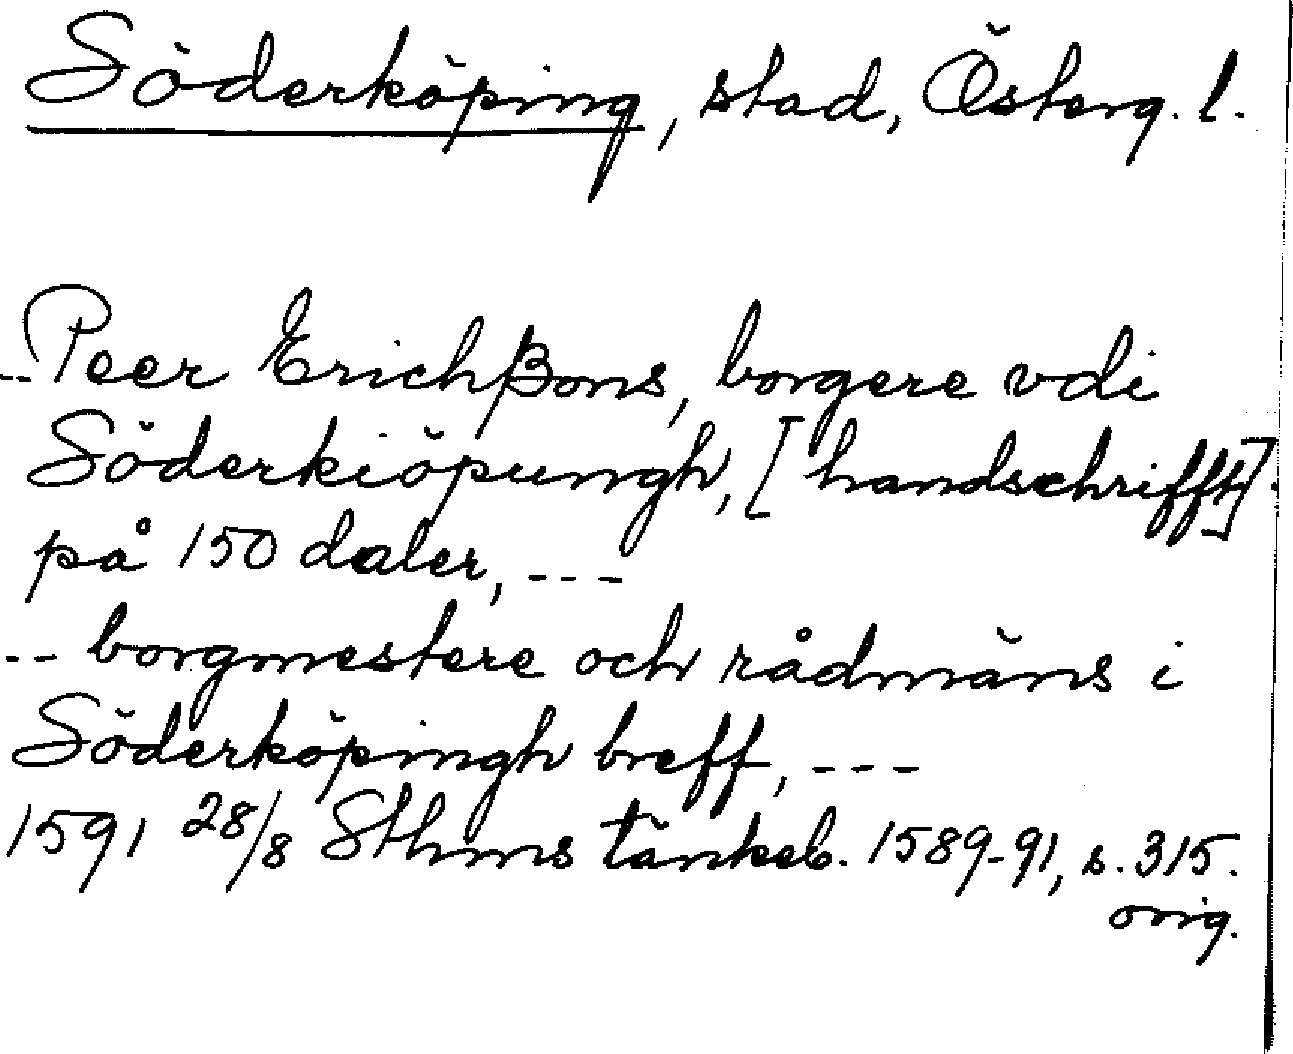 Söderköping, stad, Österg. l.
-- Peer Erichßons, borgere vdi
Söderkiöpungh, [handschrifft]
på 150 daler, ---
-- borgmestere och rådmäns i
Söderköpingh breff, ---
1591 28/8 Sthms tänkeb. 1589-91, s. 315.
orig.